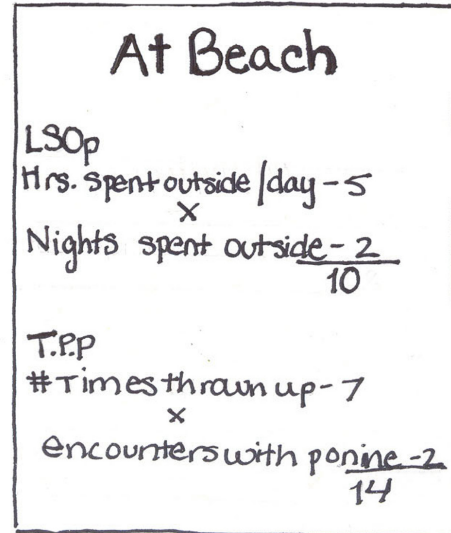 At Beach
LSOp
Hrs. spent outside/day - 5
x
Nights spent outside - 2
10
T.P.P
# Times thrown up - 7
x
encounters with ponine - 2
14